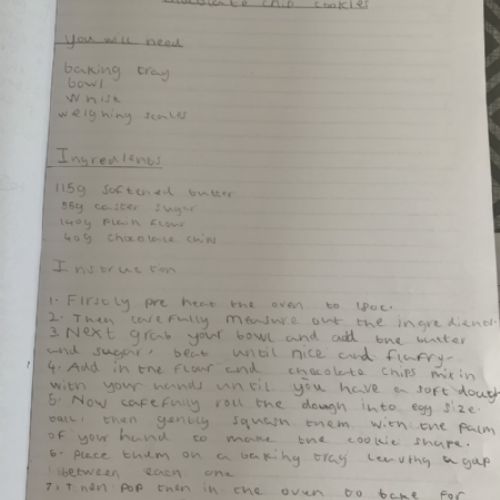 chocolate chip cookies
you will need
baking tray
bowl
whisk
weighing scales
Ingredients
115g softened butter
55g caster sugar
140g Plain flour
40g chocolate chips
Instruction
1. Firstly pre heat the oven to 180c.
2. Then carefully measure out the ingredients.
3. Next grab your bowl and add the butter
and sugar, beat until nice and fluffy.
4. Add in the flour and chocolate chips mix in
with your hands until you have a soft dough
5. Now carefully roll the dough into egg size
ball, then gently squash them with the palm
of your hand to make the cookie shape.
6. place them on a baking tray leaving a gap
between each one
7. Then pop then in the oven to bake for